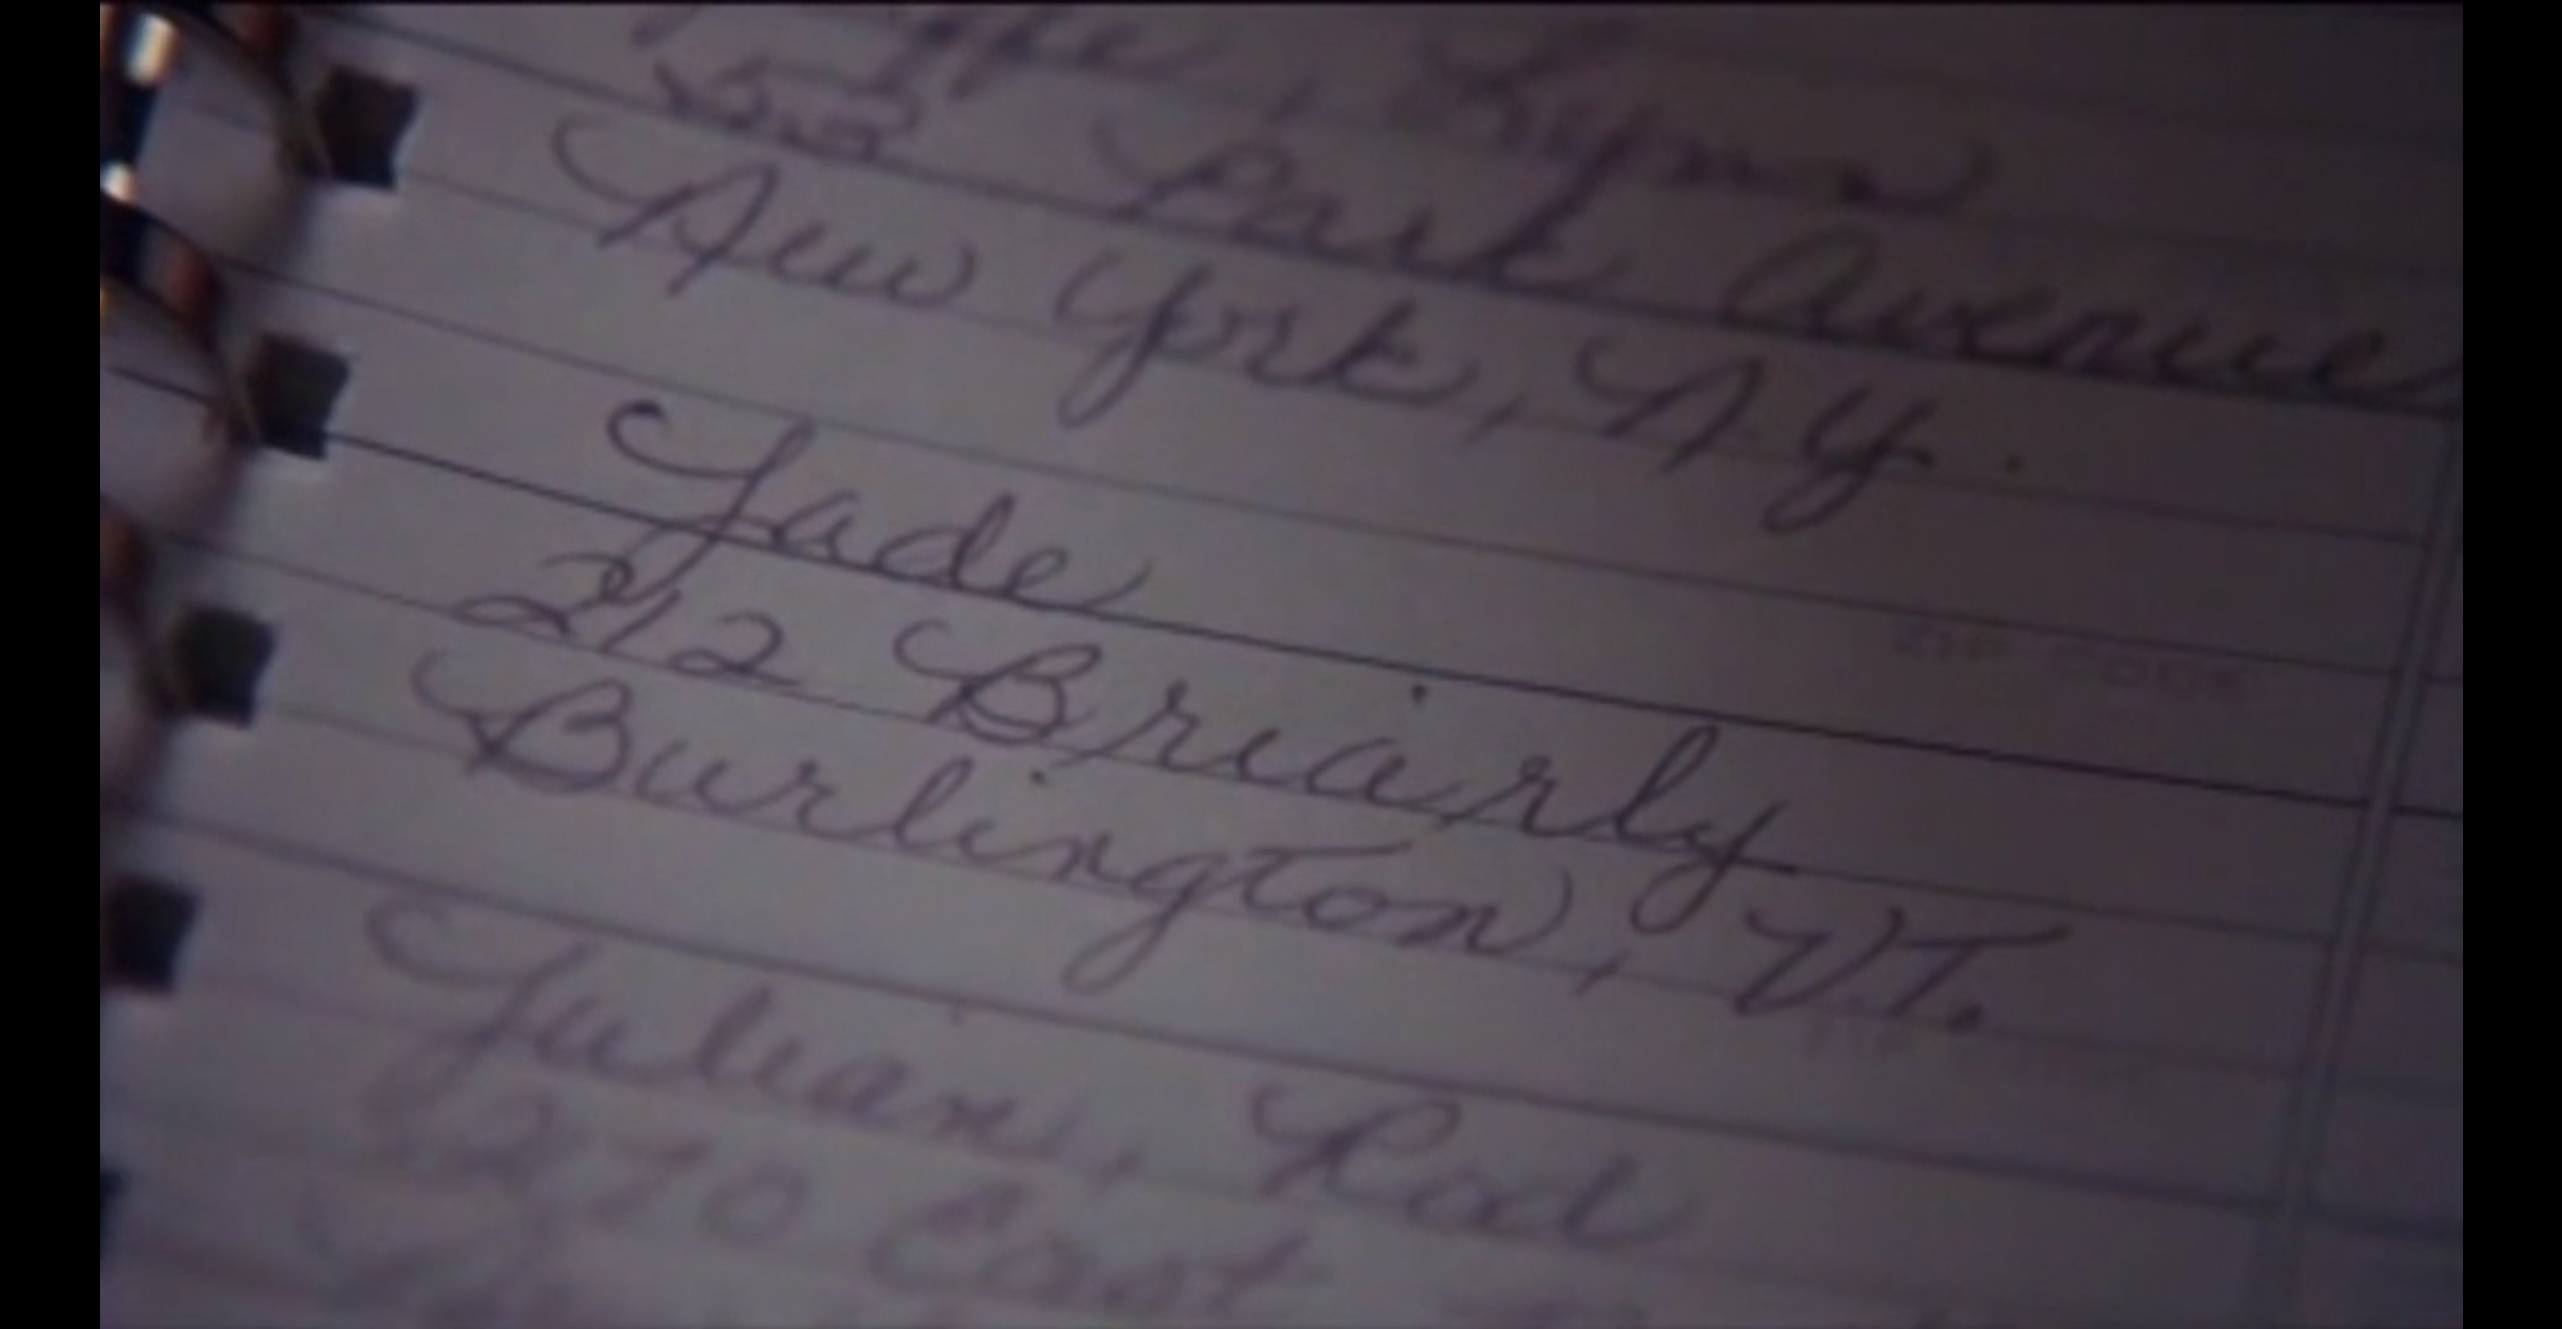 Park Avenue
New York, N.Y.
Jade
212 Briarly
Burlington, VT.
ZIP CODE
Julian, Rod
270 East